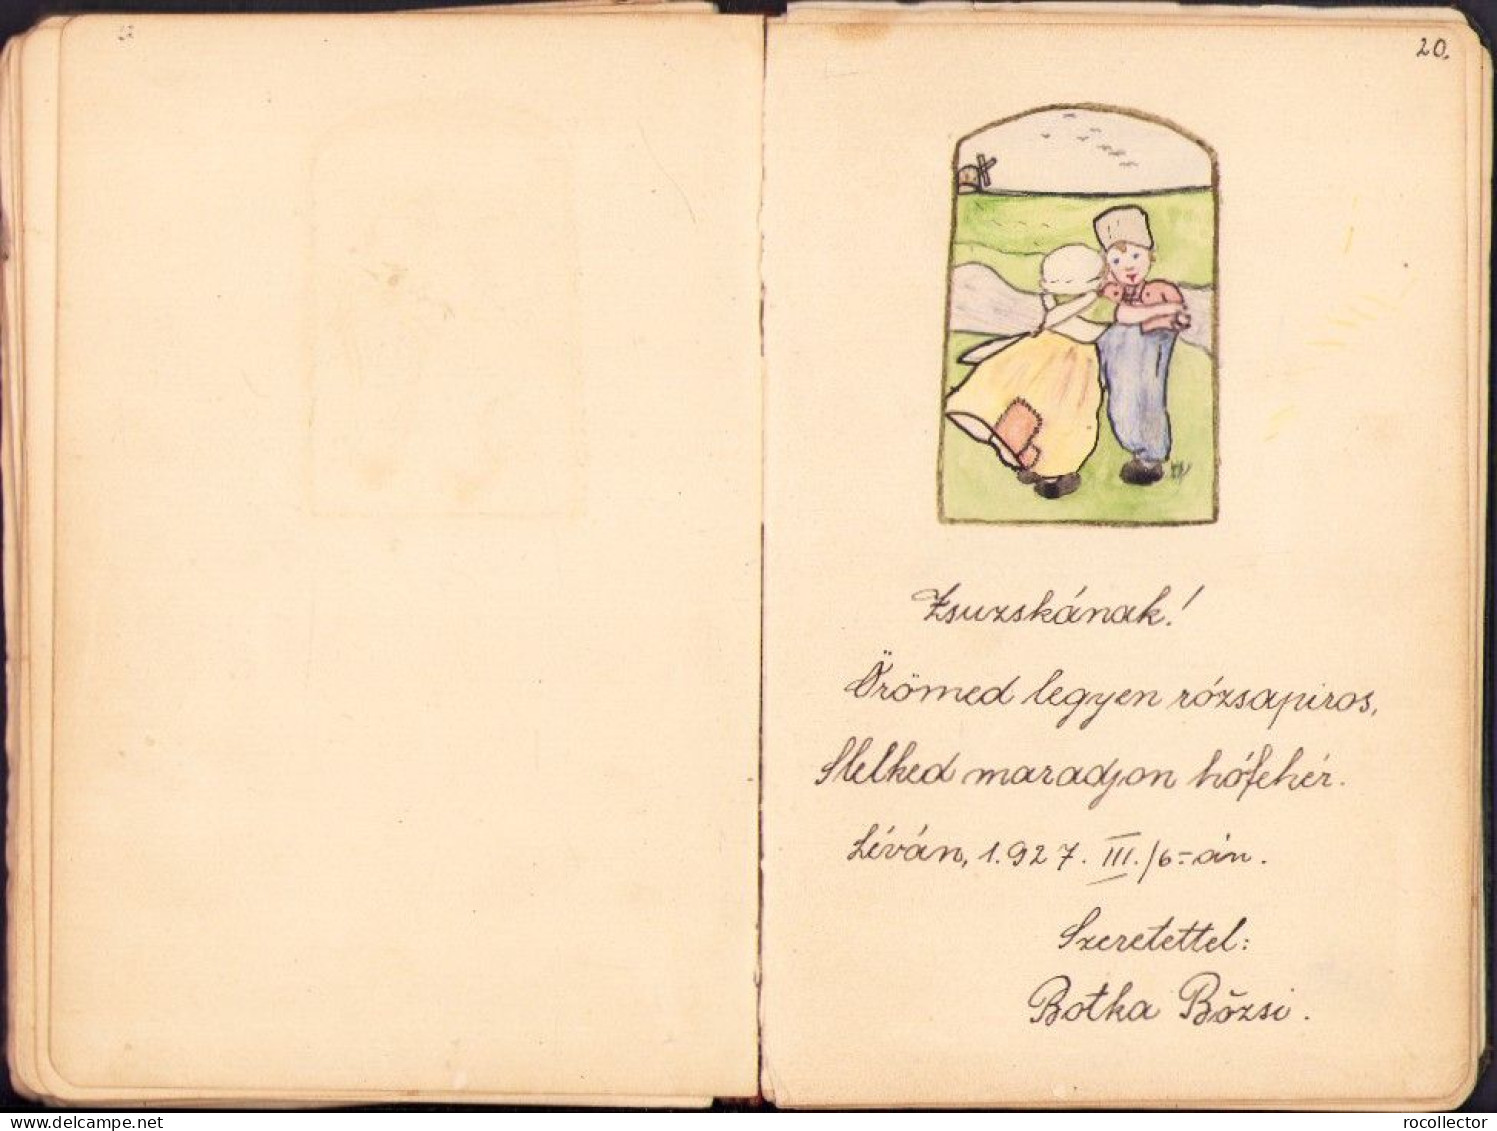 20.
Zsuzskának!
Örömed legyen rózsapiros,
Melked maradjon hófehér.
Léván, 1.927. III./6-án.
Szeretettel:
Botka Bőzsi.
delcampe.net
rocollector